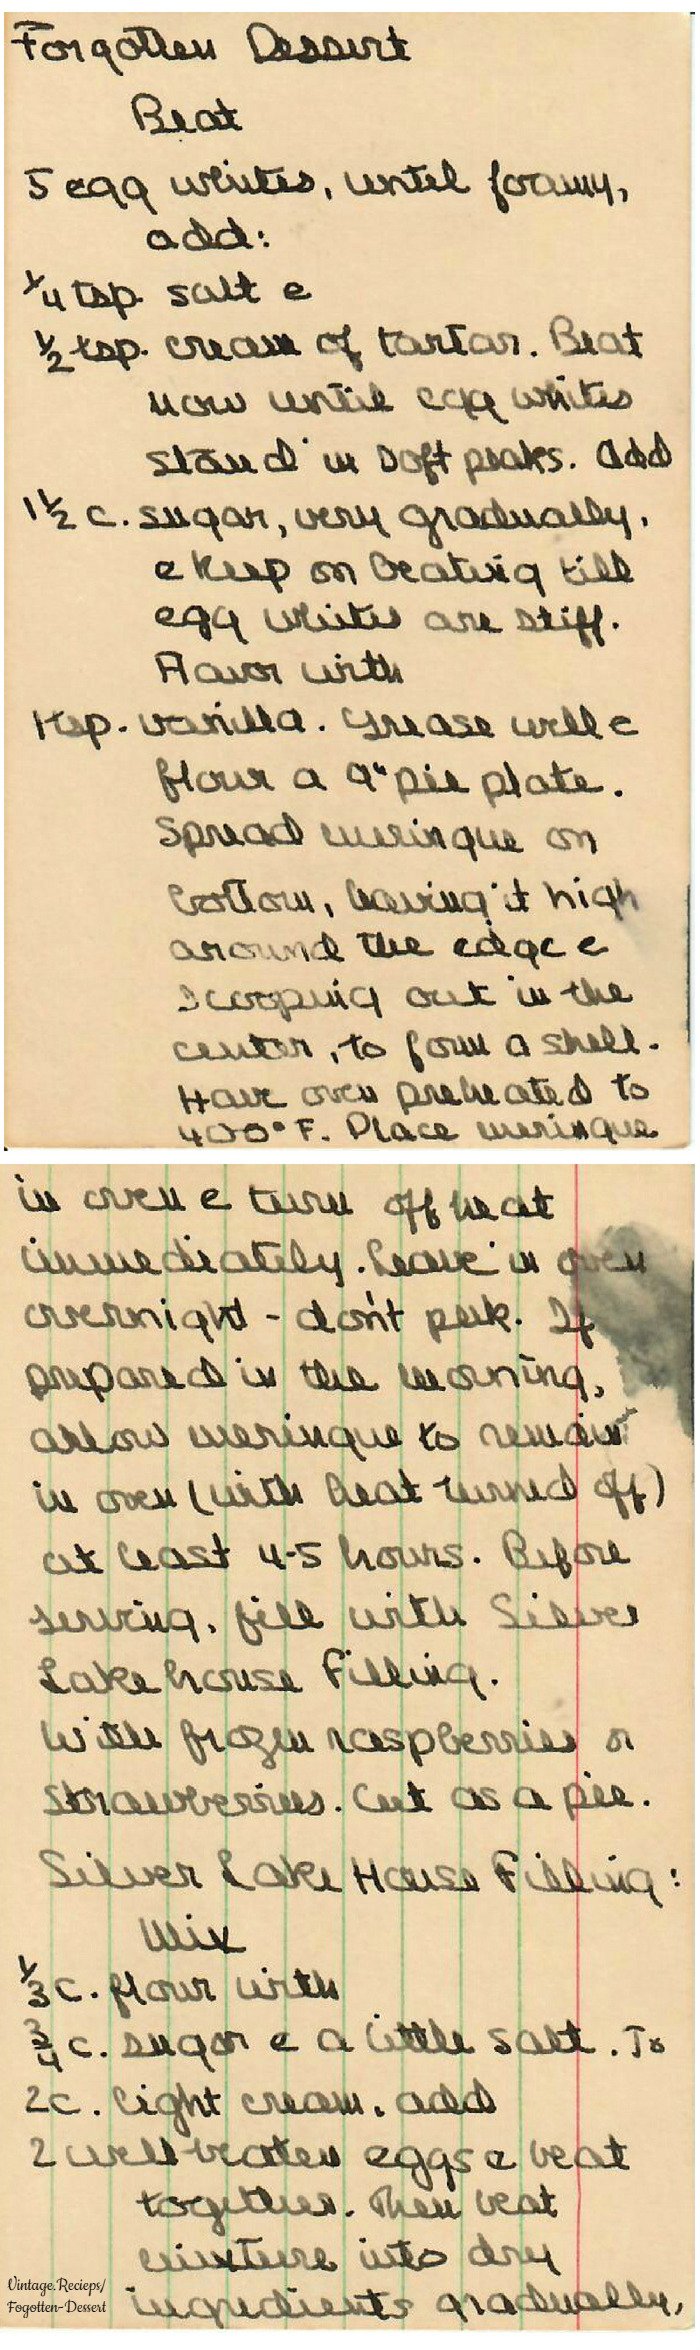 Forgotten Dessert
Beat
5 egg whites, until foamy,
add:
1/4 tsp. salt &
1/2 tsp. cream of tartar. Beat
now until egg whites
stand in soft peaks. Add
1 1/2 c. sugar, very gradually,
& keep on beating till
egg whites are stiff.
Flavor with
1 tsp. vanilla. Grease well &
flour a 9" pie plate.
Spread meringue on
bottom, having it high
around the edge &
scooping out in the
center, to form a shell.
Have oven preheated to
400° F. Place meringue
in oven & turn off heat
immediately. Leave in oven
overnight - don't peek. If
prepared in the morning,
allow meringue to remain
in oven (with heat turned off)
at least 4-5 hours. Before
serving, fill with Silver
Lake house Filling.
With frozen raspberries or
strawberries. Cut as a pie.
Silver Lake House Filling:
Mix
1/3 c. flour with
3/4 c. sugar & a little salt. To
2 c. light cream, add
2 well-beaten eggs & beat
together. Then beat
mixture into dry
ingredients gradually,
Vintage.Recieps/
Fogotten-Dessert